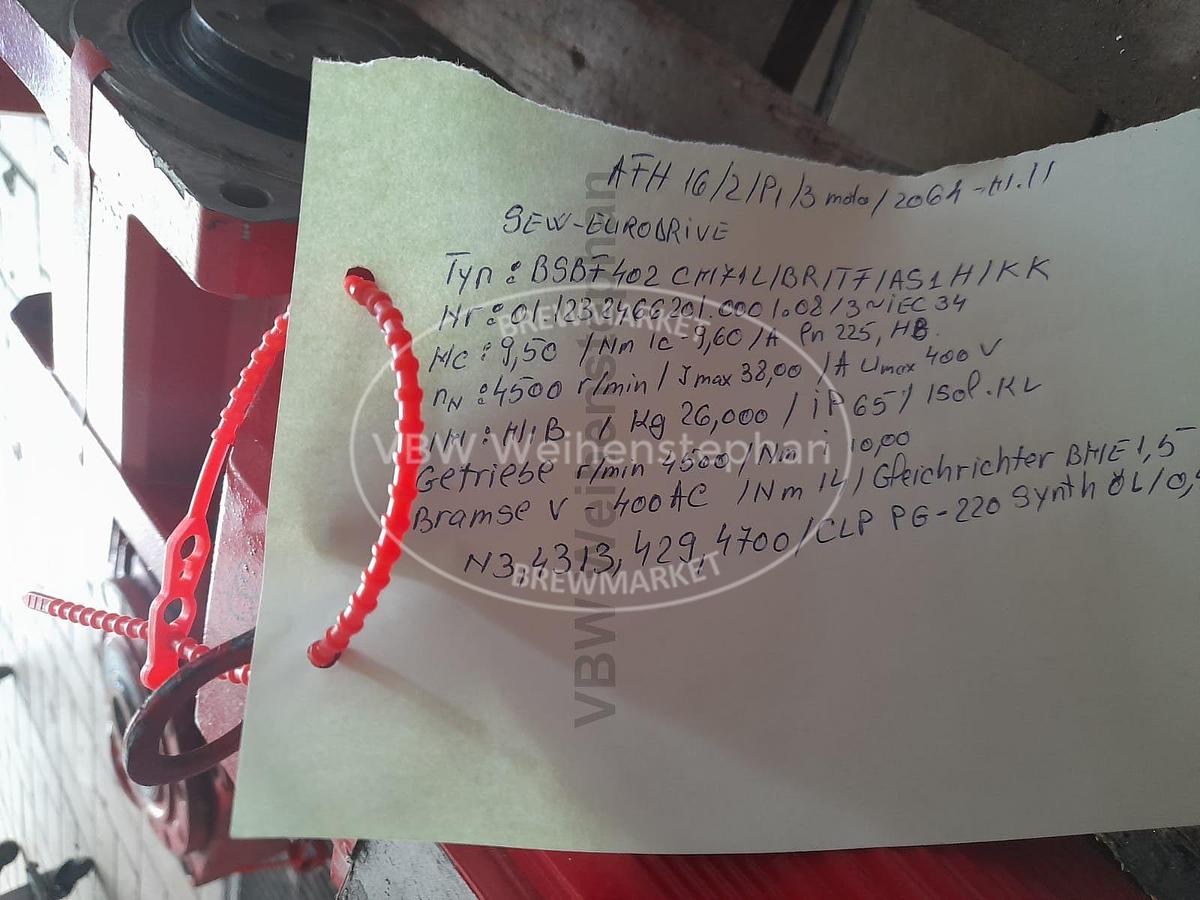 AFH 16/2/P1/3 moto/2064-H1.11
SEW-EURODRIVE
Typ: BSBF402 CM71L/BR/TF/AS1H/KK
Nr: 01.1232466201.0001.08/3~iEC 34
Mc: 9,50 /Nm Ic-9,60/A Pn 225, HB.
nN: 4500 r/min/Imax 38,00 /A Umax 400 V
IM: H1B / Kg 26,000 / iP 65/ Isol.KL
Getriebe r/min 4500/Nm i 10,00
Bramse V - 400AC /Nm 14/Gleichrichter BME 1,5
N3,4313,429,4700/CLP PG-220 Synth ÖL/0,4
BREWMARKET
VBW Weihenstephan
BREWMARKET
VBW Weihenstephan